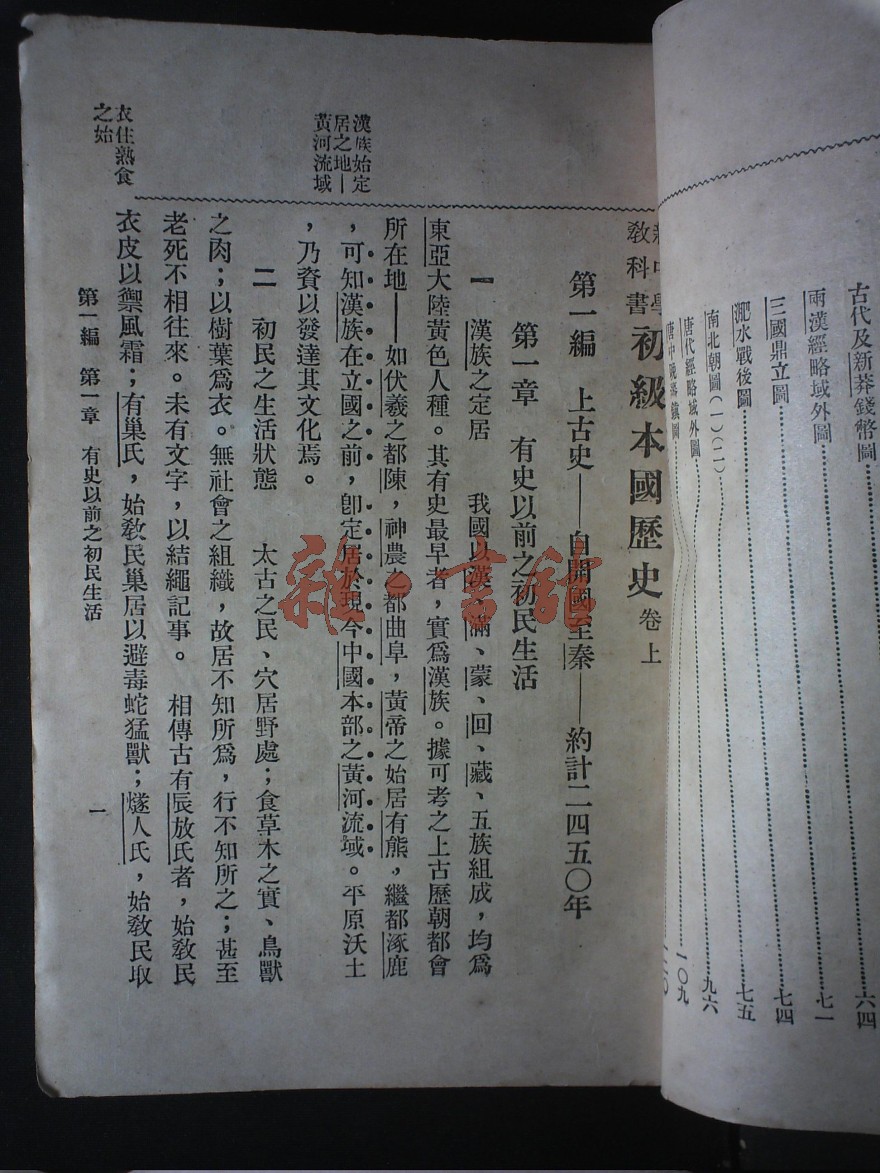 古代及新莽錢幣圖……六四
兩漢經略域外圖……七一
三國鼎立圖……七四
淝水戰後圖……七五
南北朝圖(一)(二)……九六
唐代經略域外圖……一〇九
新中學
教科書
初級本國歷史 卷上
第一編 上古史——自開國至秦——約計二四五〇年
第一章 有史以前之初民生活
一 漢族之定居 我國以漢、滿、蒙、回、藏、五族組成,均爲
東亞大陸黃色人種。其有史最早者,實爲漢族。據可考之上古歷朝都會
所在地——如伏羲之都陳,神農之都曲阜,黃帝之始居有熊,繼都涿鹿
,可知漢族在立國之前,卽定居於現今中國本部之黃河流域。平原沃土
,乃資以發達其文化焉。
二 初民之生活狀態 太古之民、穴居野處;食草木之實、鳥獸
之肉;以樹葉爲衣。無社會之組織,故居不知所爲,行不知所之;甚至
老死不相往來。未有文字,以結繩記事。 相傳古有辰放氏者,始敎民
衣皮以禦風霜;有巢氏,始敎民巢居以避毒蛇猛獸;燧人氏,始敎民取
漢族始定
居之地—
黃河流域
衣住熟食
之始
第一編 第一章 有史以前之初民生活
一
雜·書館